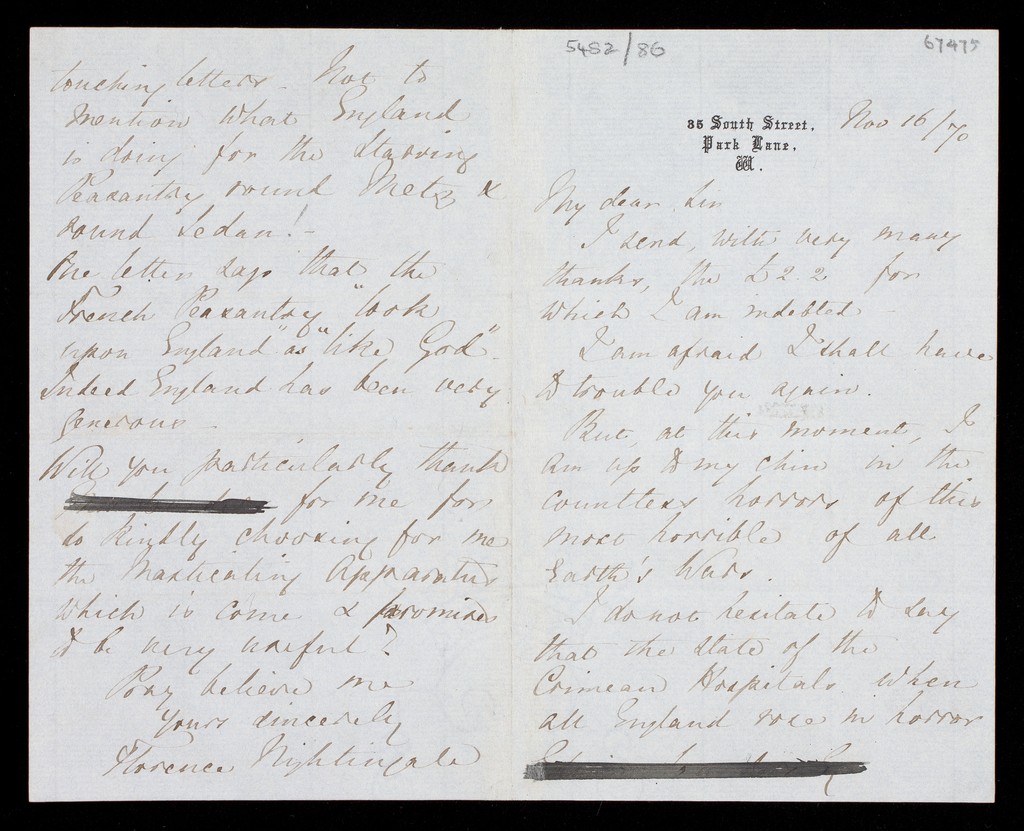 5482/86
67475
35 South Street,
Park Lane,
W.
Nov 16/70
My dear Sir
I send, with very many
thanks, the £2.2 for
which I am indebted -
I am afraid I shall have
to trouble you again.
But, at this moment, I
am up to my chin in the
countless horrors of this
most horrible of all
Earth's Wars.
I do not hesitate to say
that the state of the
Crimean Hospitals when
all England rose in horror
touching letters - Not to
mention what England
is doing for the starving
Peasantry round Metz &
round Sedan! -
One letter says that the
French Peasantry "look
upon England" as "like God" -
Indeed England has been very
generous -
Will you particularly thank
for me for
so kindly choosing for me
the Masticating Apparatus
which is come & promises
to be very useful?
Pray believe me
yours sincerely
Florence Nightingale